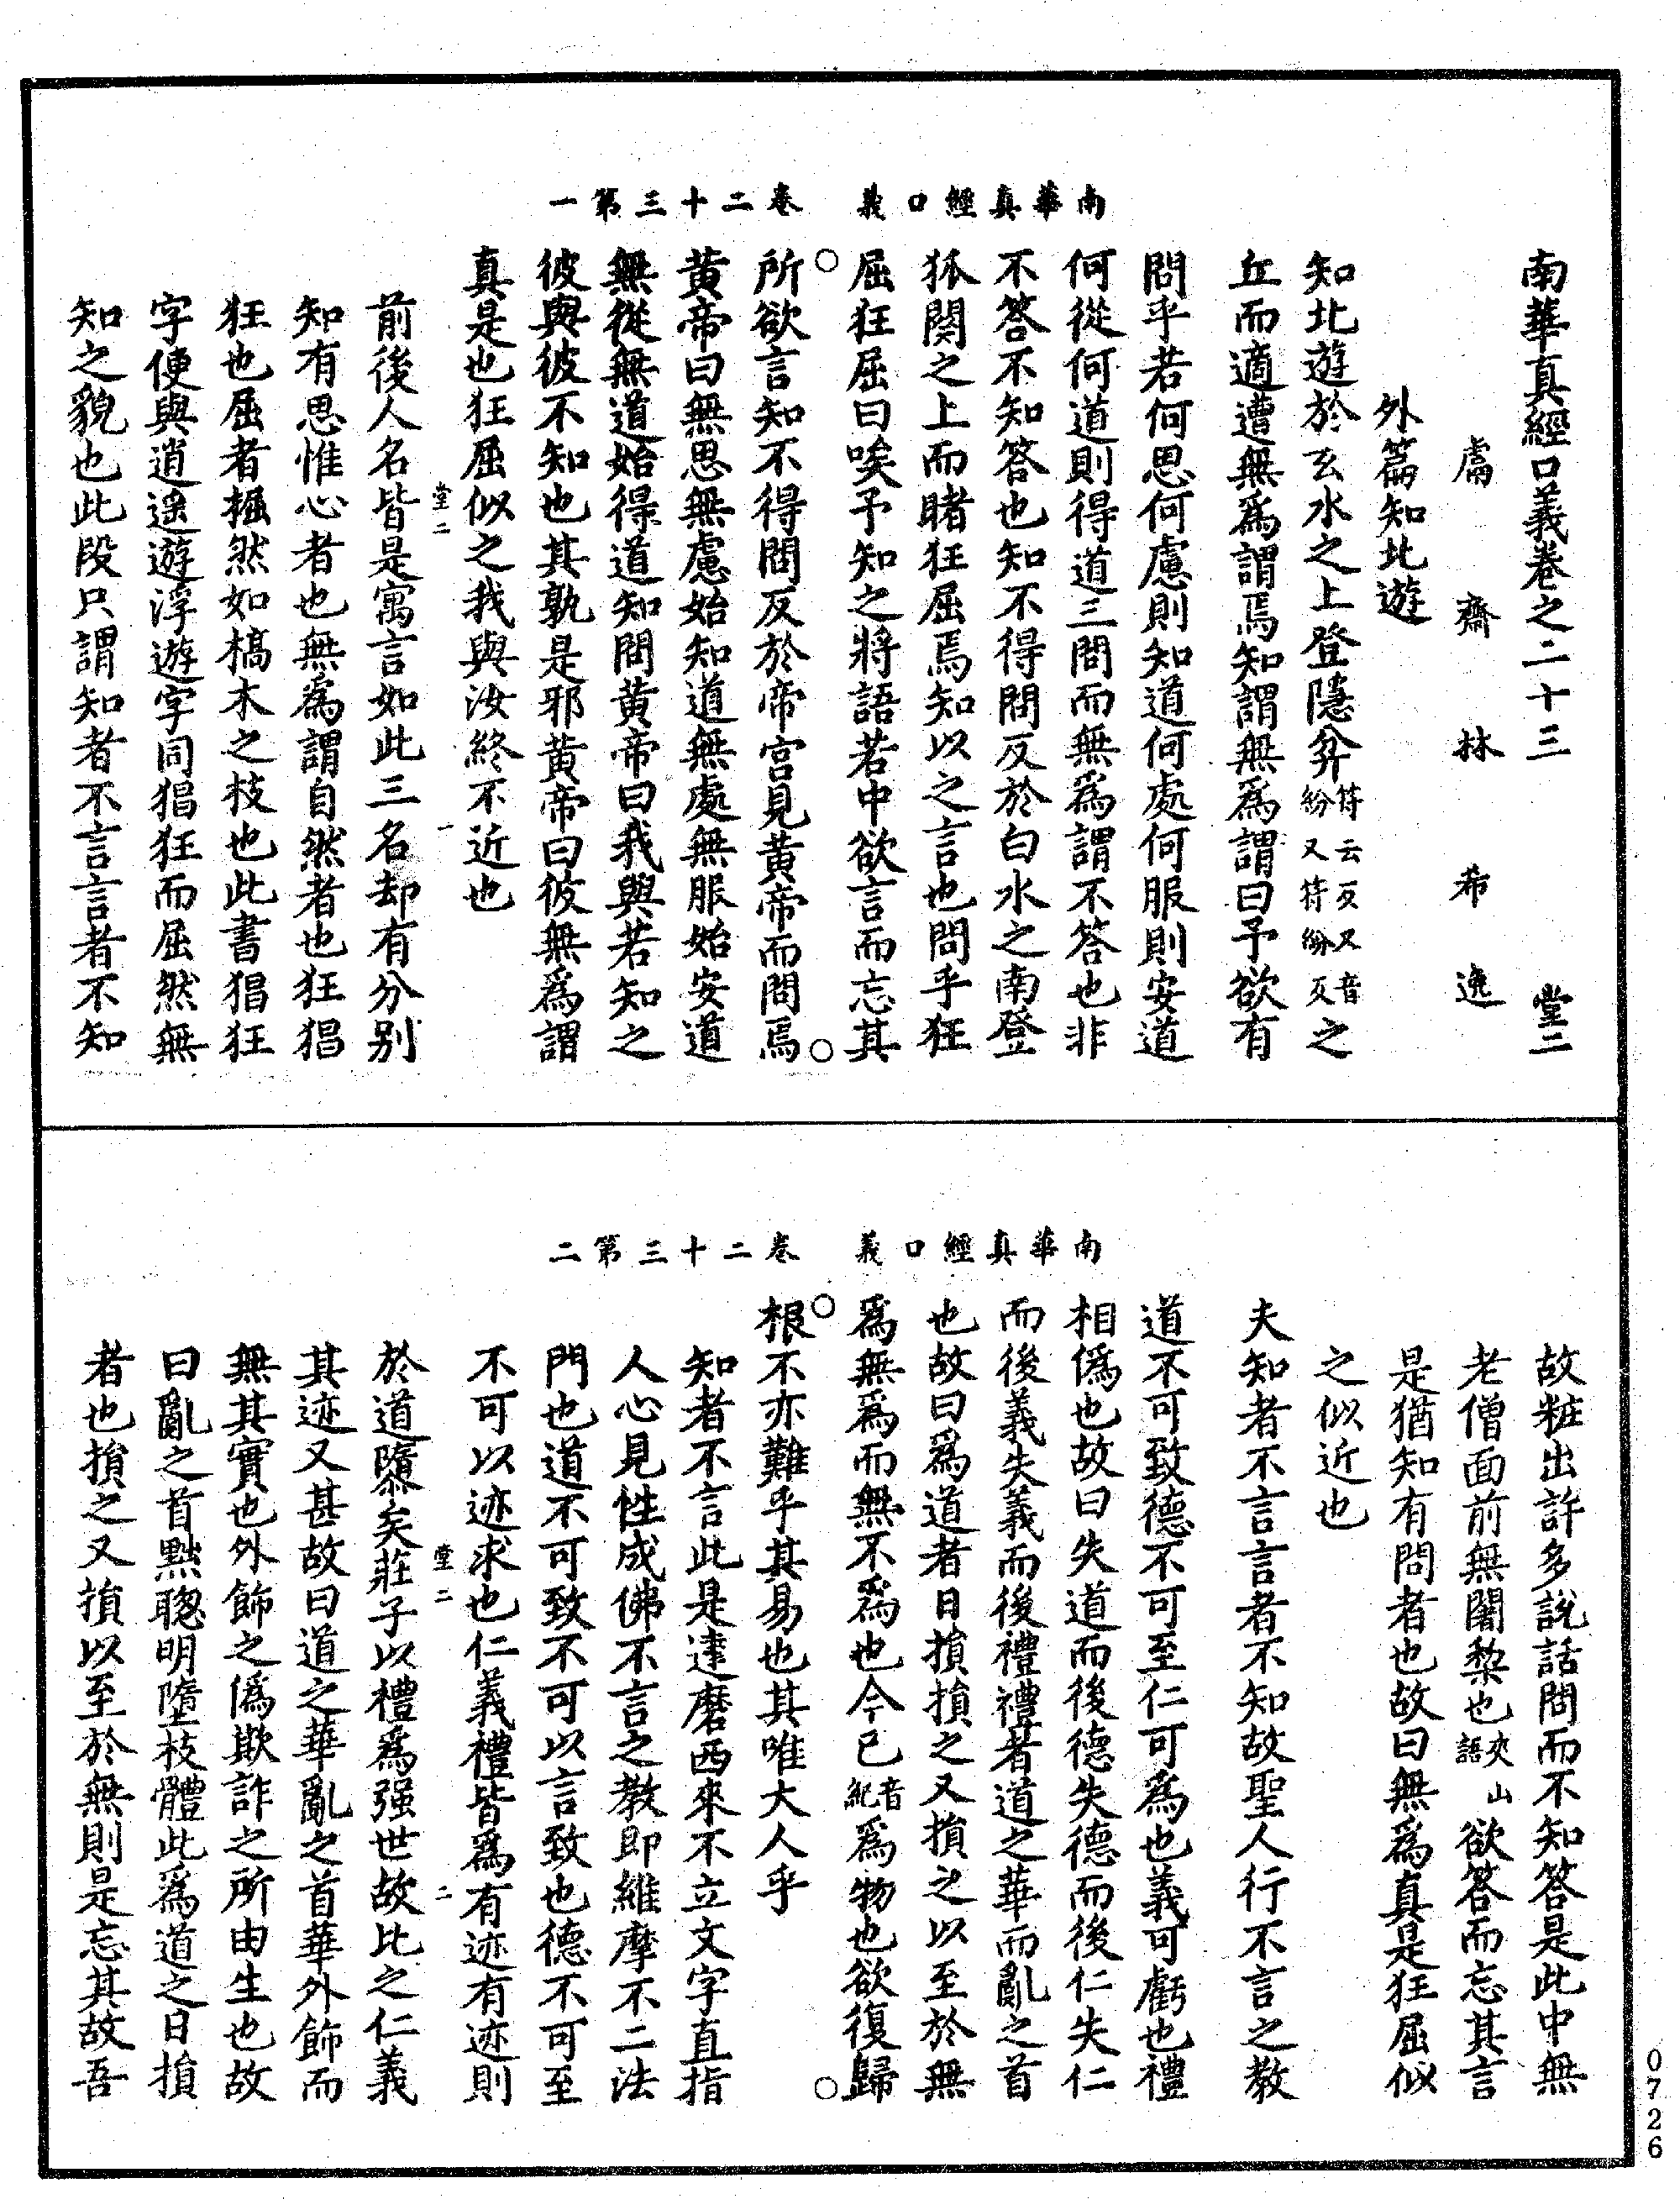 南華真經口義卷之二十三　堂二
鬳齋林希逸
外篇知北遊
知北遊於玄水之上登隱弅符云反又音紛又符紛反之
丘而適遭無爲謂焉知謂無爲謂曰予欲有
問乎若何思何慮則知道何處何服則安道
何從何道則得道三問而無爲謂不答也非
不答不知答也知不得問反於白水之南登
狐闋之上而睹狂屈焉知以之言也問乎狂
屈狂屈曰唉予知之將語若中欲言而忘其
所欲言知不得問反於帝宮見黃帝而問焉
黃帝曰無思無慮始知道無處無服始安道
無從無道始得道知問黃帝曰我與若知之
彼與彼不知也其孰是邪黃帝曰彼無爲謂
真是也狂屈似之我與汝終不近也
前後人名皆是寓言如此三名却有分別
知有思惟心者也無爲謂自然者也狂猖
狂也屈者掘然如槁木之枝也此書猖狂
字便與逍遥遊浮遊字同猖狂而屈然無
知之貌也此段只謂知者不言言者不知
南華真經口義　卷二十三第一
堂二　一
故粧出許多說話問而不知答是此中無
老僧面前無闍黎也夾山語欲答而忘其言
是猶知有問者也故曰無爲真是狂屈似
之似近也
夫知者不言言者不知故聖人行不言之教
道不可致德不可至仁可爲也義可虧也禮
相僞也故曰失道而後德失德而後仁失仁
而後義失義而後禮禮者道之華而亂之首
也故曰爲道者日損損之又損之以至於無
爲無爲而無不爲也今已音紀爲物也欲復歸
根不亦難乎其易也其唯大人乎
知者不言此是達磨西來不立文字直指
人心見性成佛不言之教即維摩不二法
門也道不可致不可以言致也德不可至
不可以迹求也仁義禮皆爲有迹有迹則
於道隳矣莊子以禮爲强世故比之仁義
其迹又甚故曰道之華亂之首華外飾而
無其實也外飾之僞欺詐之所由生也故
曰亂之首黜聰明墮枝體此爲道之日損
者也損之又損以至於無則是忘其故吾
南華真經口義　卷二十三第二
堂二　二
0726